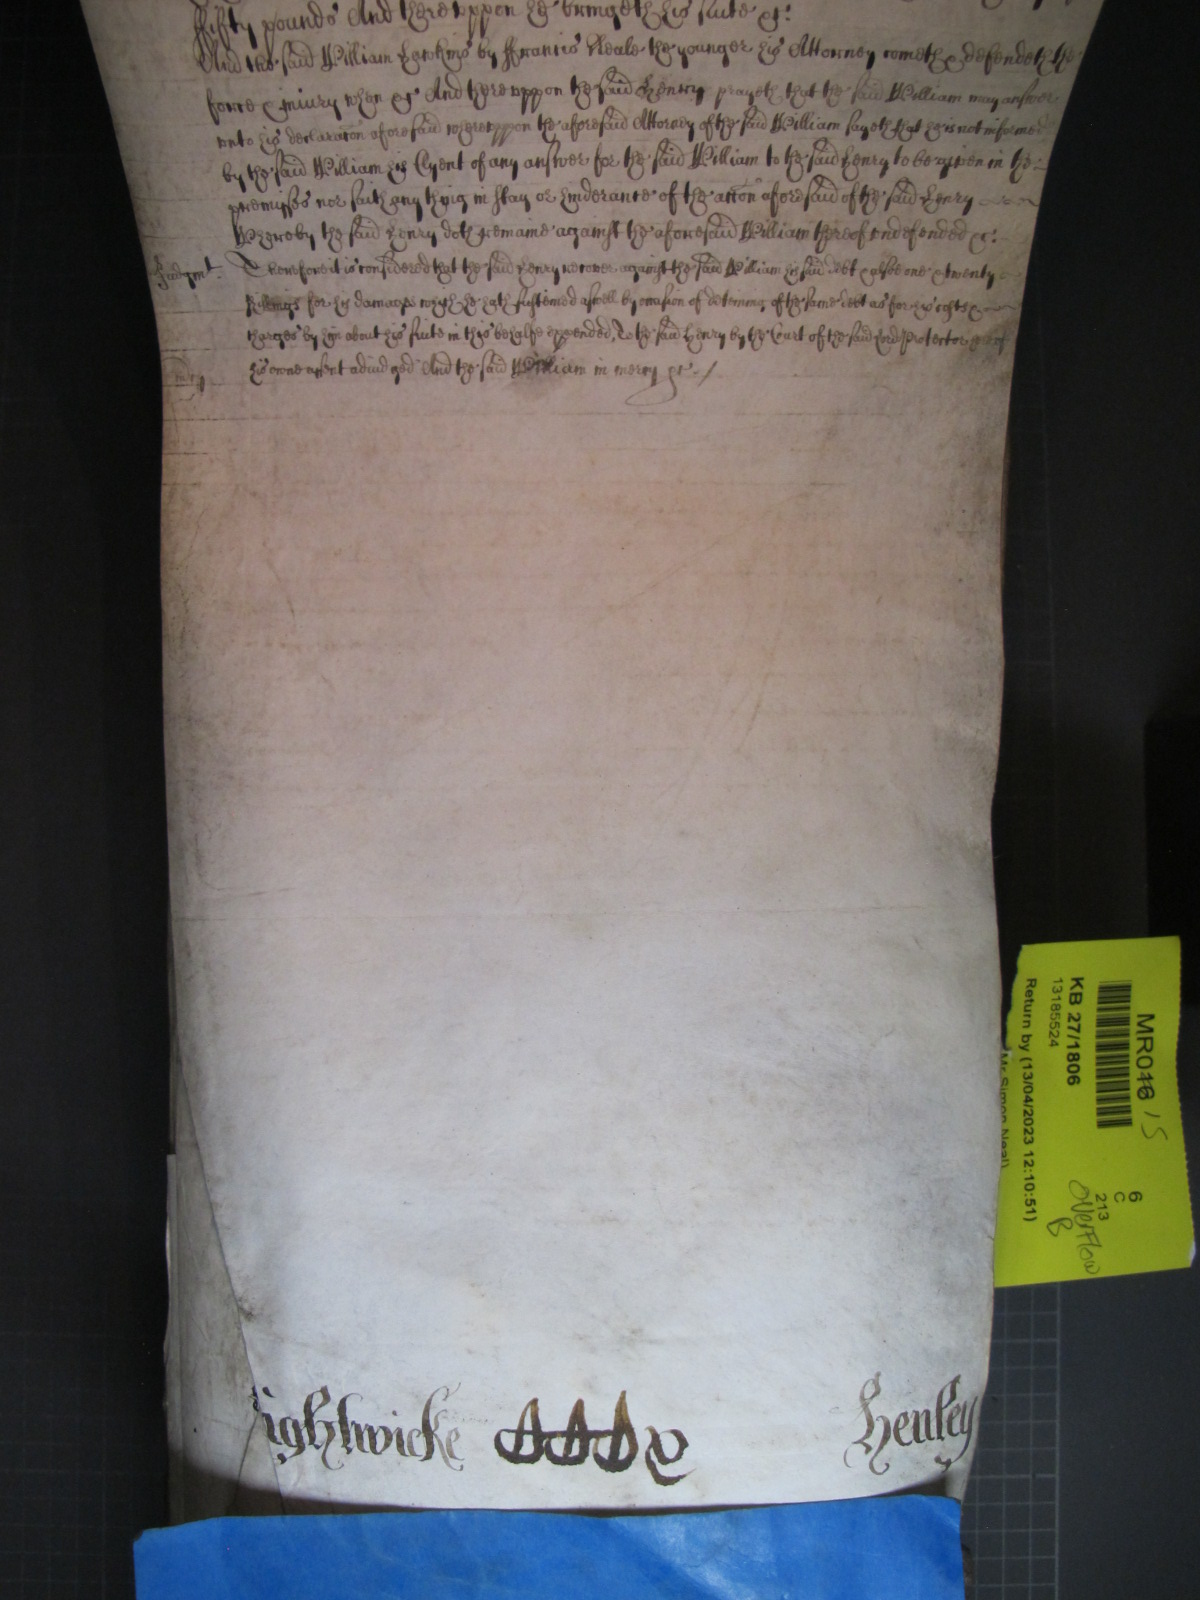 ffifty pounds And thereuppon he bringeth his suite &c:
And the said William Hawkins by ffrancis Neale the younger his Attorney cometh & defendeth the
force & iniury when &c And thereuppon the said Henry prayeth that the said William may answer
unto his declaracon aforesaid whereuppon the aforesaid Attorney of the said William sayeth that he is not informed
by the said William his Clyent of any answer for the said William to the said Henry to be given in the
premisses nor saith any thing in stay or hinderance of the accon aforesaid of the said Henry
Whereby the said Henry doth remaine against the aforesaid William thereof undefended &c:
Judgmt. Therefore it is considered that the said Henry recover against the said William his said debt & alsoe one & twenty
shillings for his damages which he hath susteined aswell by occasion of deteining of the same debt as for his costs &
charges by him about his suite in this behalfe expended, To the said Henry by the Court of the said Lord Protector
mcy his owne assent adiudged And the said William in mercy &c. /
MR018 15
KB 27/1806
13185524
Return by (13/04/2023 12:10:51)
Mr Simon Neal)
6
C
213
OVERFLOW
B
ightwicke
Henley